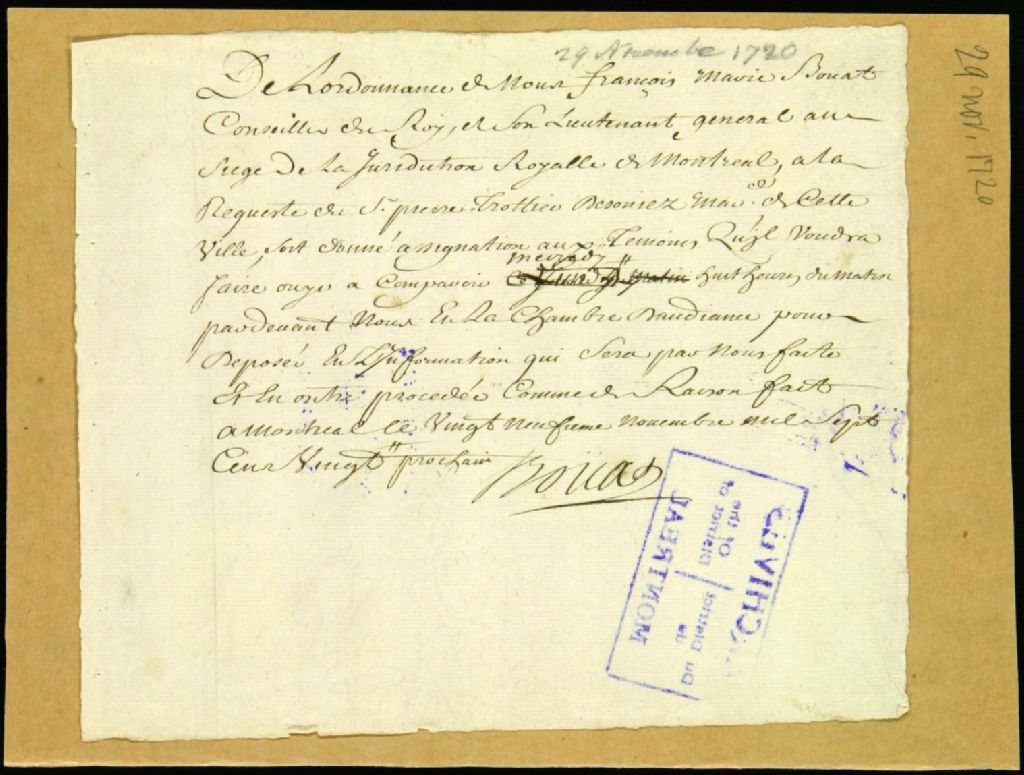 29 Novembre 1720
De Lordonnance de Nous françois Marie Bouat
Conseiller du Roy, et Son Lieutenant general au
Siege De La Juridiction Royalle de Montreal, a la
Requeste du Sr. pierre Trottier Desoniez Mard. de Cette
Ville, soit donné assignation aux Temoins Qu'yl Voudra
faire ouyr a Comparoir
mercredy
huit heures du matin
pardevant Nous En La Chambre Daudiance pour
Deposer En L'Information qui Sera par Nous faite
Et En outre procedér Comme de Raison fait
a Montreal le Vingt Neufieme Novembre mil Sept
Cens Vingt prochain
Bouat
29 NOV. 1720
ARCHIVES
Of the
District of
Du District
de
MONTREAL